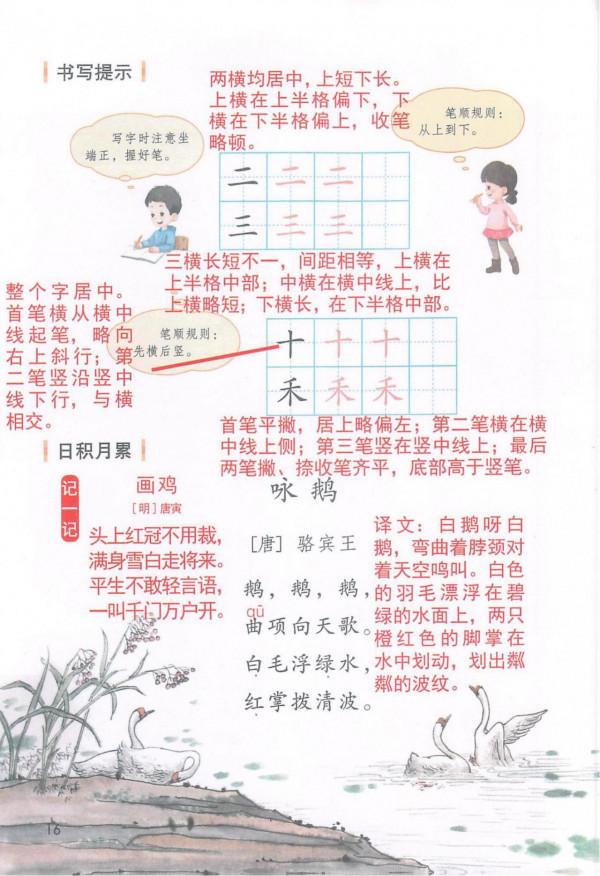 书写提示
两横均居中，上短下长。
上横在上半格偏下，下
横在下半格偏上，收笔
略顿。
写字时注意坐
端正，握好笔。
笔顺规则：
从上到下。
二 二 二
三 三 三
三横长短不一，间距相等，上横在
上半格中部；中横在横中线上，比
上横略短；下横长，在下半格中部。
整个字居中。
首笔横从横中
线起笔，略向
右上斜行；第
二笔竖沿竖中
线下行，与横
相交。
笔顺规则：
先横后竖。
十 十 十
禾 禾 禾
首笔平撇，居上略偏左；第二笔横在横
中线上侧；第三笔竖在竖中线上；最后
两笔撇、捺收笔齐平，底部高于竖笔。
日积月累
记一记
画鸡
［明］唐寅
头上红冠不用裁，
满身雪白走将来。
平生不敢轻言语，
一叫千门万户开。
咏鹅
［唐］骆宾王
鹅，鹅，鹅，
qū
曲项向天歌。
白毛浮绿水，
红掌拨清波。
译文：白鹅呀白
鹅，弯曲着脖颈对
着天空鸣叫。白色
的羽毛漂浮在碧
绿的水面上，两只
橙红色的脚掌在
水中划动，划出粼
粼的波纹。
16